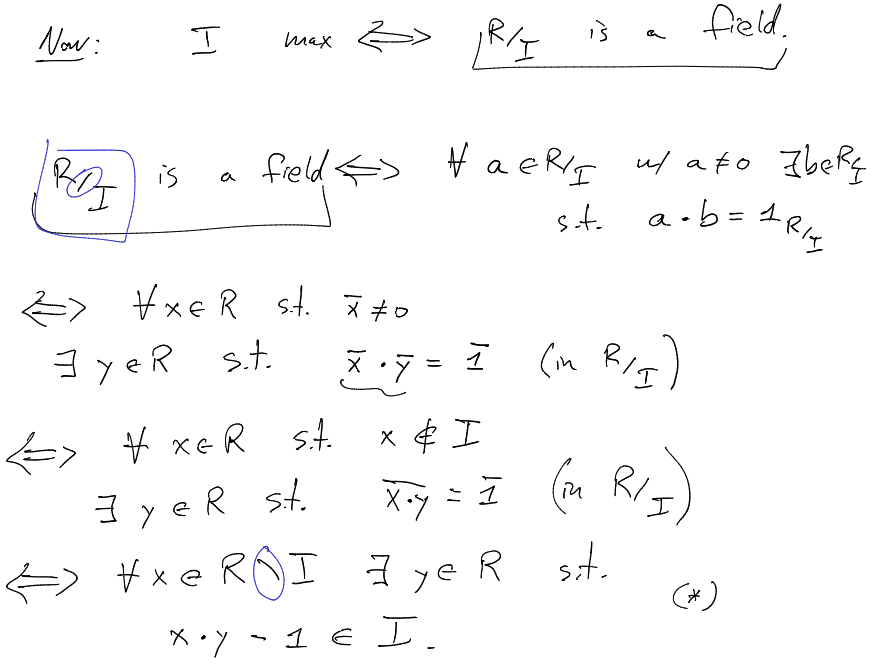 Now: I max ⟺ R/I is a field.
R/I is a field ⟺ ∀ a ∈ R/I w/ a ≠ 0 ∃ b ∈ R/I
s.t. a · b = 1_{R/I}
⟺ ∀ x ∈ R s.t. x̄ ≠ 0
∃ y ∈ R s.t. x̄ · ȳ = 1̄ (in R/I)
⟺ ∀ x ∈ R s.t. x ∉ I
∃ y ∈ R s.t. \overline{x·y} = 1̄ (in R/I)
⟺ ∀ x ∈ R \ I ∃ y ∈ R s.t. (*)
x · y - 1 ∈ I.